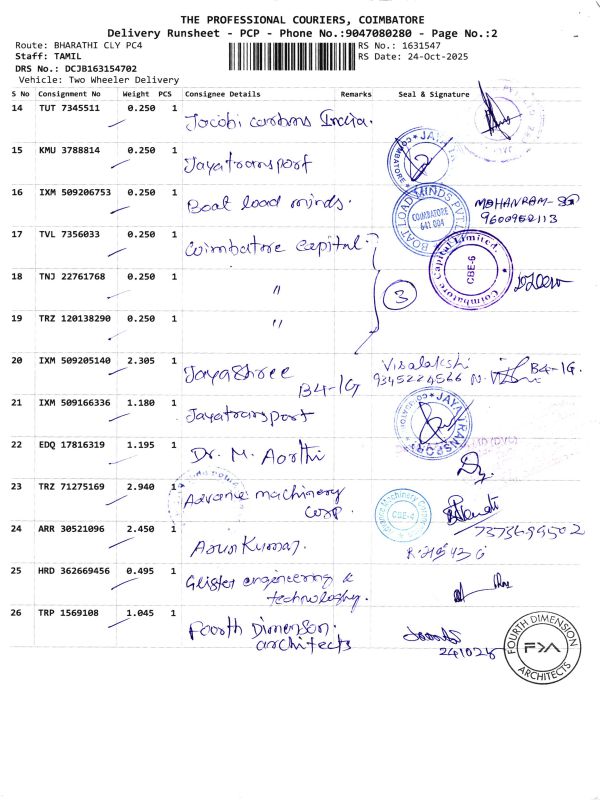 THE PROFESSIONAL COURIERS, COIMBATORE
Delivery Runsheet - PCP - Phone No.:9047080280 - Page No.:2
Route: BHARATHI CLY PC4
RS No.: 1631547
Staff: TAMIL
RS Date: 24-Oct-2025
DRS No.: DCJB163154702
Vehicle: Two Wheeler Delivery
S No Consignment No Weight PCS Consignee Details Remarks Seal & Signature
14 TUT 7345511 0.250 1 Jacobi carbons India.
15 KMU 3788814 0.250 1 Jayatransport
COIMBATORE JAYA
16 IXM 509206753 0.250 1 Boat load minds.
BOAT LOAD MINDS PVT LTD
COIMBATORE
641 004
MOHANRAM-SG
9600952113
17 TVL 7356033 0.250 1 Coimbatore capital.
Coimbatore Capital Limited.
CBE-6
18 TNJ 22761768 0.250 1 "
3
19 TRZ 120138290 0.250 1 "
20 IXM 509205140 2.305 1 JayaShree
B4-1G
Visalakshi
9345224566
B4-1G.
21 IXM 509166336 1.180 1 Jayatransport
JAYA TRANSPORT
22 EDQ 17816319 1.195 1 Dr. M. Aarthi
23 TRZ 71275169 2.940 1 Advance machinery
corp.
CBE-4
7373699502
24 ARR 30521096 2.450 1 Arun Kumar.
25 HRD 362669456 0.495 1 Glister engineering &
technology.
26 TRP 1569108 1.045 1 Fourth Dimenson.
architects
241025
FOURTH DIMENSION
FDA
ARCHITECTS